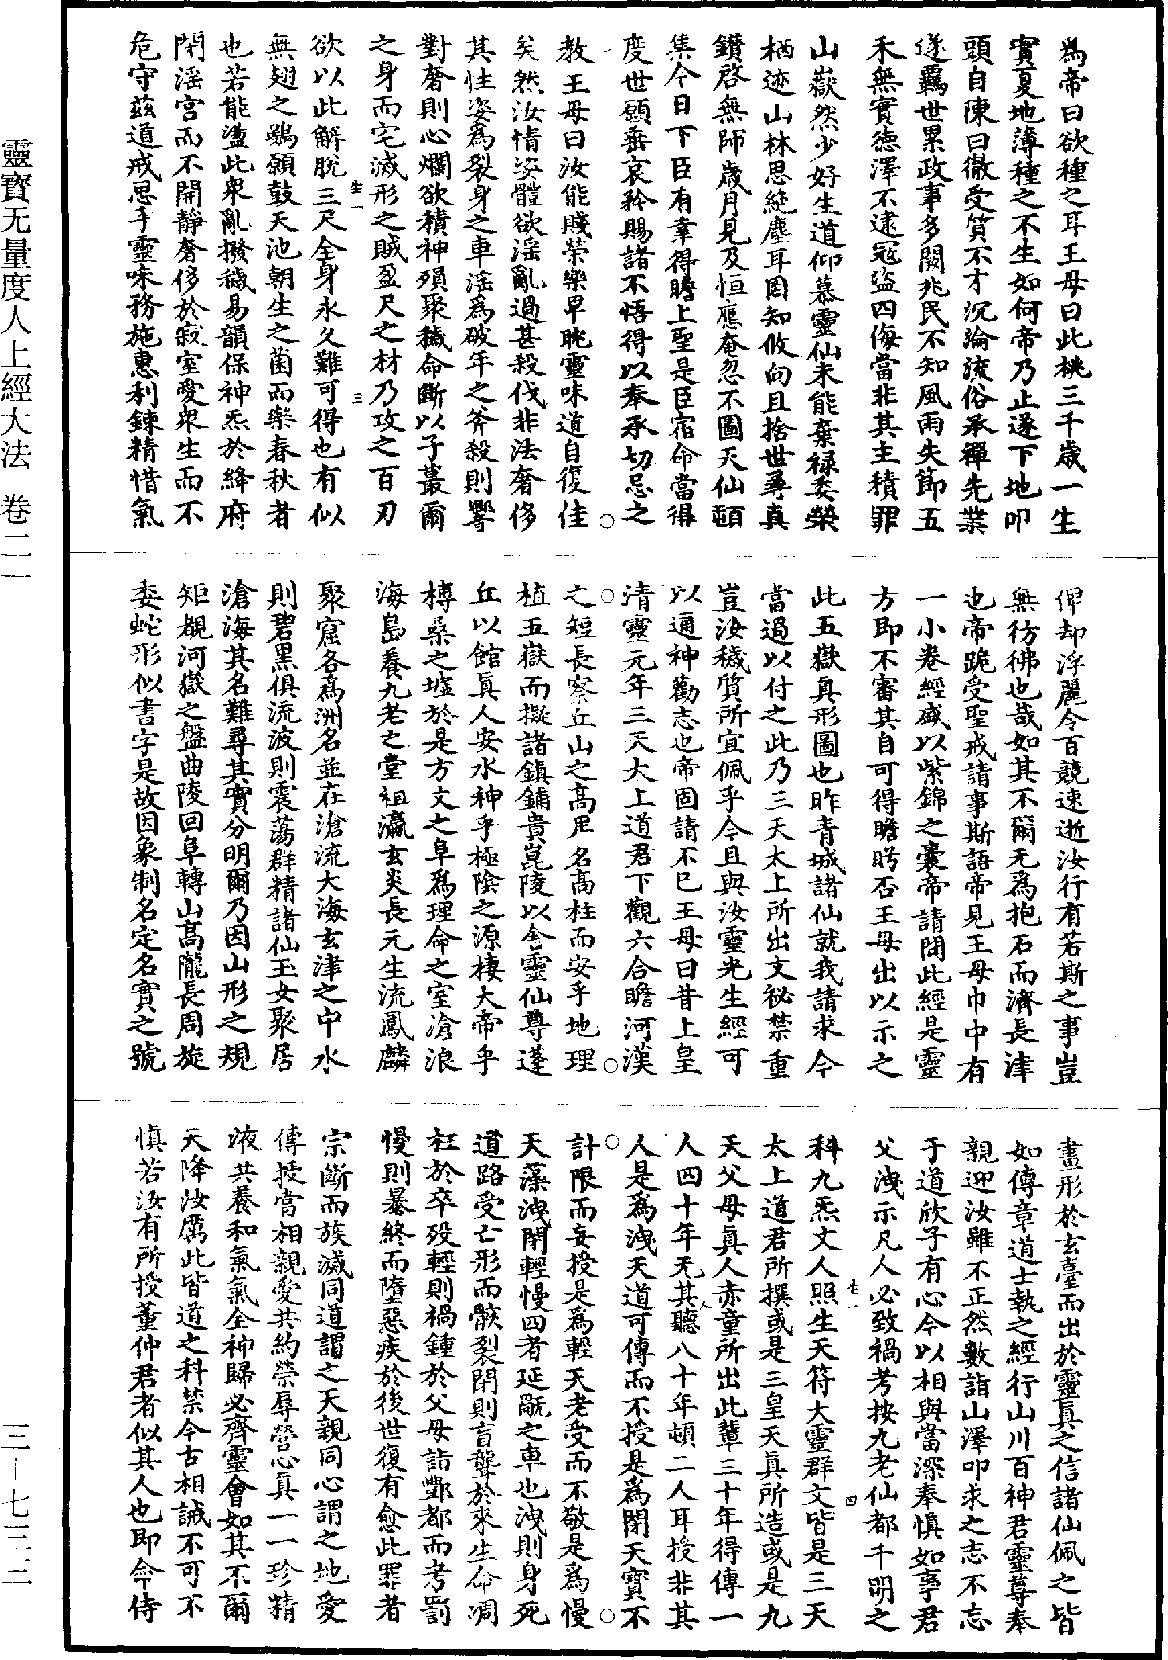 靈寶无量度人上經大法 卷二一
三—七三三
爲帝曰欲種之耳王母曰此桃三千歲一生
實夏地薄種之不生如何帝乃止遂下地叩
頭自陳曰徹受質不才沉淪流俗承禪先業
遂羈世累政事多闕兆民不知風雨失節五
禾無實德澤不逮寇盜四侮當非其主積罪
山嶽然少好生道仰慕靈仙未能棄祿委榮
栖迹山林思絕塵耳罔知攸向且捨世尋真
鑽啓無師歲月見及恒應奄忽不圖天仙頓
集今日下臣有幸得瞻上聖是臣宿命當得
度世願垂哀矜賜諸不悟得以奉承切忌之
教王母曰汝能賤榮樂卑眈靈味道自復佳
矣然汝情姿體欲淫亂過甚殺伐非法奢侈
其性姿爲裂身之車淫爲破年之斧殺則響
對奢則心爛欲積神殞聚穢命斷以子蕞爾
之身而宅滅形之賊盈尺之材乃攻之百刃
欲以此解脫三尺全身永久難可得也有似
無翅之鷃願鼓天池朝生之菌而樂春秋者
也若能盪此衆亂撥穢易韻保神炁於絳府
閉淫宮而不開靜奢侈於寂室愛衆生而不
危守茲道戒思乎靈味務施惠利鍊精惜氣
俾却浮麗令百競速逝汝行有若斯之事豈
無彷彿也哉如其不爾无爲抱石而濟長津
也帝跪受聖戒請事斯語帝見王母巾中有
一小卷經盛以紫錦之囊帝請閱此經是靈
方即不審其自可得瞻眄否王母出以示之
此五嶽真形圖也昨青城諸仙就我請求今
當過以付之此乃三天太上所出文祕禁重
豈汝穢質所宜佩乎今且與汝靈光生經可
以通神勸志也帝固請不巳王母曰昔上皇
清靈元年三天大上道君下觀六合瞻河漢
之短長察丘山之高卑名高柱而安乎地理
植五嶽而擬諸鎮鋪貴崑陵以舍靈仙尊蓬
丘以館真人安水神乎極陰之源棲大帝乎
榑桑之墟於是方丈之阜爲理命之室滄浪
海島養九老之堂祖瀛玄炎長元生流鳳麟
聚窟各爲洲名並在滄流大海玄津之中水
則碧黑俱流波則震蕩群精諸仙玉女聚居
滄海其名難尋其實分明爾乃因山形之規
矩覩河嶽之盤曲陵回阜轉山高隴長周旋
委蛇形似書字是故因象制名定名實之號
畫形於玄臺而出於靈真之信諸仙佩之皆
如傳章道士執之經行山川百神君靈尊奉
親迎汝雖不正然數詣山澤叩求之志不忘
于道欣子有心今以相與當深奉慎如事君
父洩示凡人必致禍考按九老仙都千明之
科九炁文人照生天符大靈群文皆是三天
太上道君所撰或是三皇天真所造或是九
天父母真人赤童所出此輩三十年得傳一
人四十年无其聽八十年頓二人耳授非其
人是爲洩天道可傳而不授是爲閉天寶不
計限而妄授是爲輕天老受而不敬是爲慢
天藻洩閉輕慢四者延厩之車也洩則身死
道路受亡形而骸裂閉則盲聾於來生命凋
枉於卒歿輕則禍鍾於父母詣酆都而考罰
慢則暴終而墮惡疾於後世復有愈此罪者
宗斷而族滅同道謂之天親同心謂之地愛
傳授當相親愛共約榮辱營心真一一珍精
液共養和氣氣全神歸必齊靈會如其不爾
天降汝厲此皆道之科禁今古相誡不可不
慎若汝有所授董仲君者似其人也即令侍